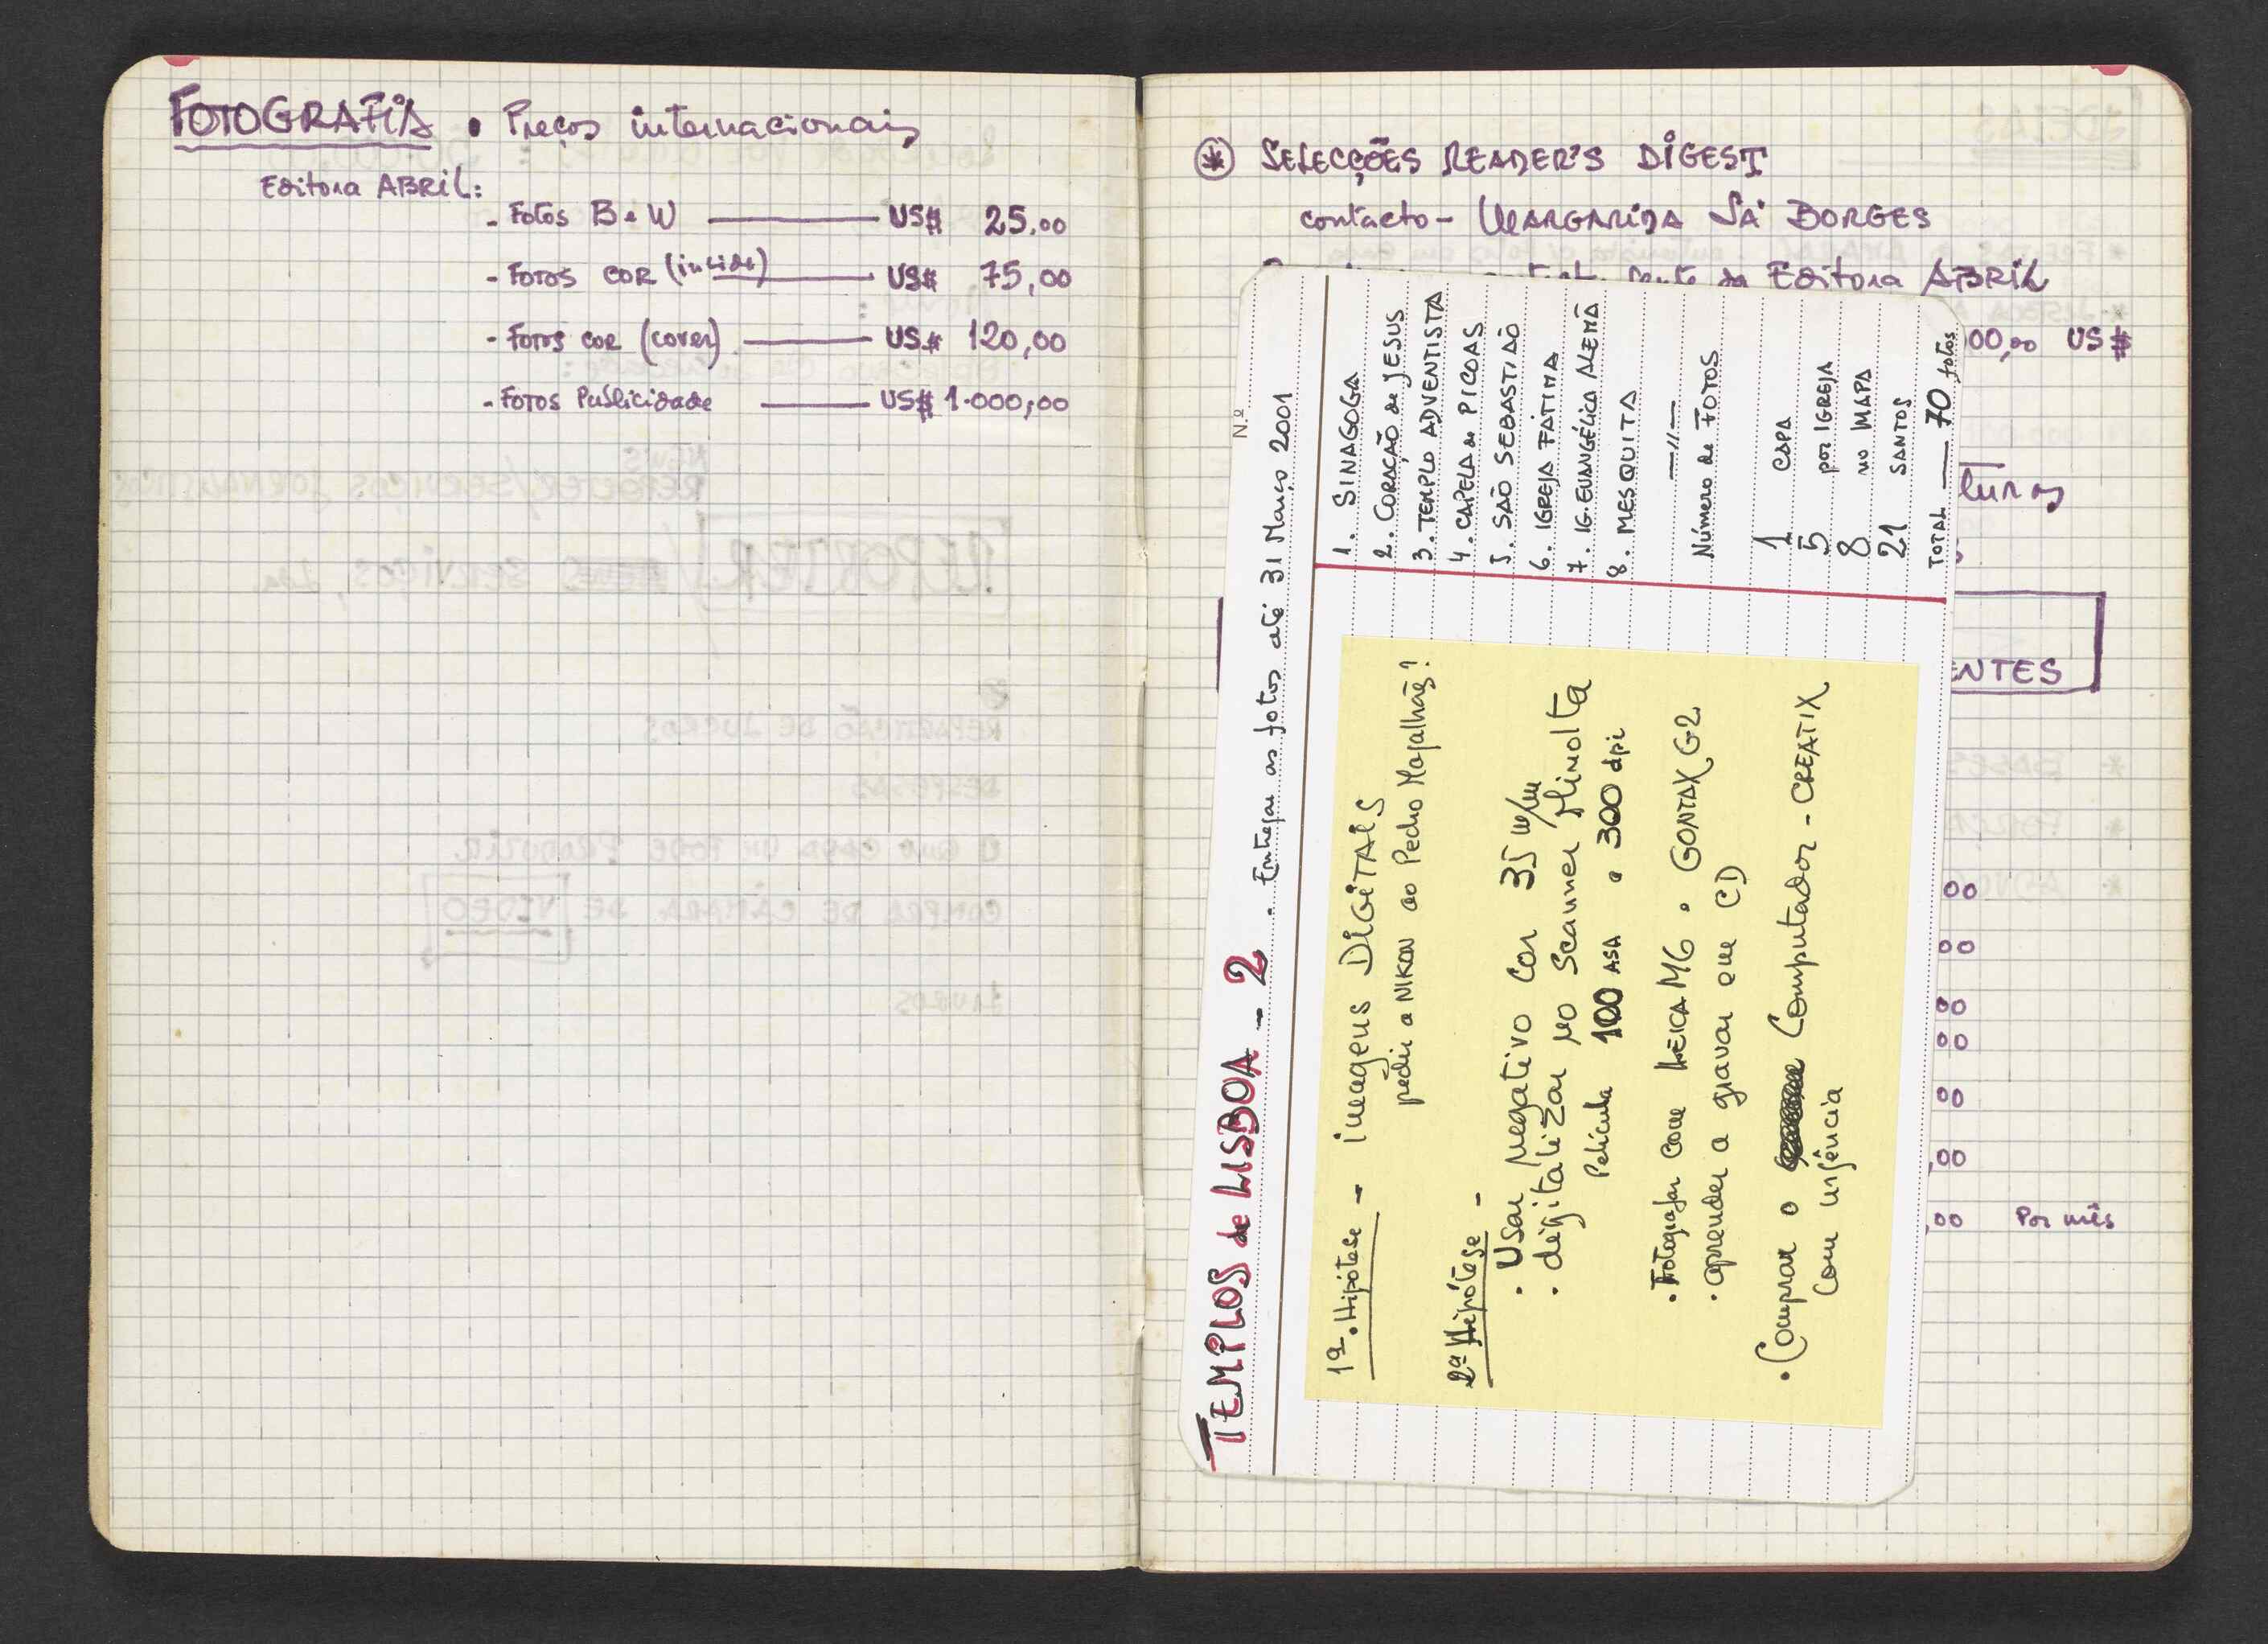 FOTOGRAFIA • Preços internacionais
Editora ABRIL:
- Fotos B e W — US$ 25.00
- Fotos COR (inside) — US$ 75,00
- Fotos cor (cover) — US$ 120,00
- Fotos Publicidade — US$ 1.000,00
* SELECÇÕES READER'S DIGEST
contacto - MARGARIDA SÁ BORGES
da Editora ABRIL
00,00 US$
ENTES
00
00
00
00
00
,00
,00 Por mês
TEMPLOS de LISBOA - 2 . Entregar as fotos até 31 Março 2001
N.º
1. SINAGOGA
2. CORAÇÃO de JESUS
3. TEMPLO ADVENTISTA
4. CAPELA de PICOAS
5. SÃO SEBASTIÃO
6. IGREJA FÁTIMA
7. IG. EVANGÉLICA ALEMÃ
8. MESQUITA
—//—
Número de FOTOS
1 CAPA
5 por IGREJA
8 no MAPA
21 SANTOS
TOTAL — 70 fotos
1ª. Hipótese - imagens DIGITAIS
pedir a NIKON ao Pedro Magalhães!
2ª Hipótese -
. Usar negativo cor 35 m/m
. digitalizar no Scanner Minolta
Película 100 ASA • 300 dpi
. Fotografar com LEICA M6 • CONTAX G2
. aprender a gravar em CD
. Comprar o Computador - CREATIX
com urgência